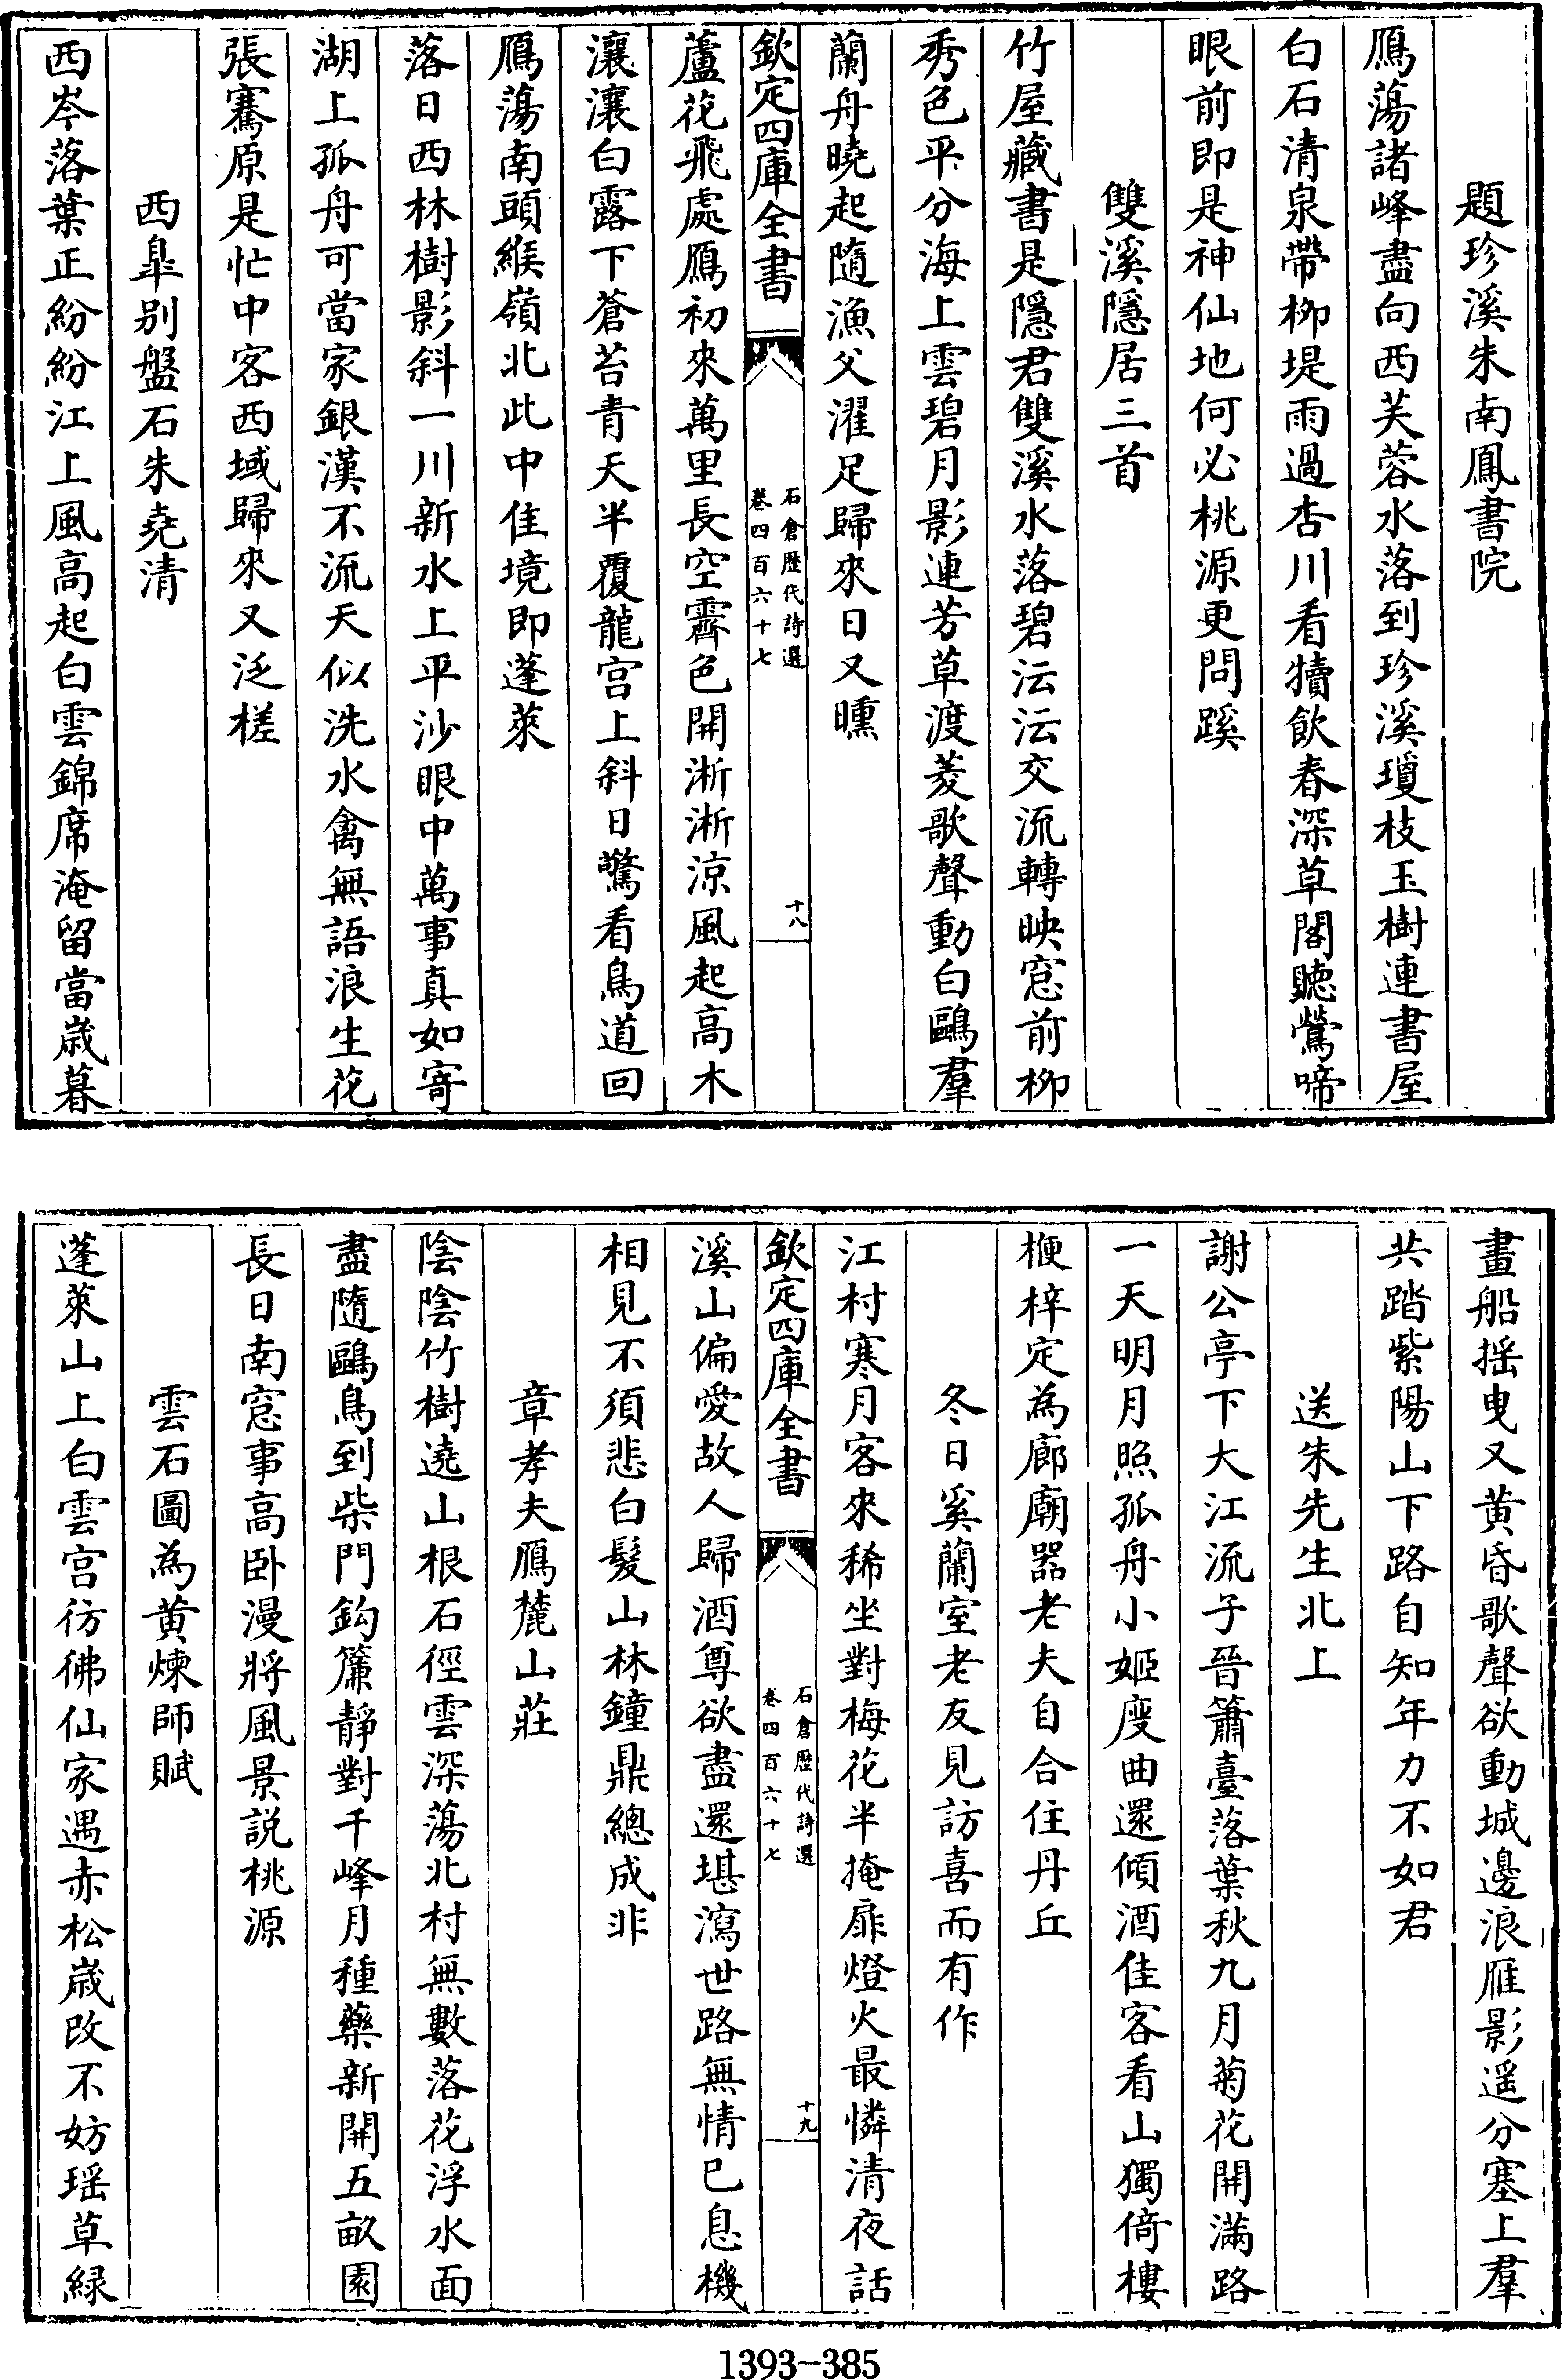 題珍溪朱南鳳書院
鴈蕩諸峰盡向西芙蓉水落到珍溪瓊枝玉樹連書屋
白石清泉帶柳堤雨過杏川看犢飲春深草閣聽鶯啼
眼前即是神仙地何必桃源更問蹊
雙溪隱居三首
竹屋藏書是隱君雙溪水落碧沄沄交流轉映窓前柳
秀色平分海上雲碧月影連芳草渡菱歌聲動白鷗羣
蘭舟曉起隨漁父濯足歸來日又曛
欽定四庫全書
石倉歷代詩選
卷四百六十七
十八
蘆花飛處鴈初來萬里長空霽色開淅淅涼風起高木
瀼瀼白露下蒼苔青天半覆龍宫上斜日驚看鳥道回
鴈蕩南頭緱嶺北此中佳境即蓬萊
落日西林樹影斜一川新水上平沙眼中萬事真如寄
湖上孤舟可當家銀漢不流天似洗水禽無語浪生花
張騫原是忙中客西域歸來又泛槎
西臯别盤石朱堯清
西岑落葉正紛紛江上風高起白雲錦席淹留當嵗暮
畫船揺曳又黄昏歌聲欲動城邊浪雁影遥分塞上羣
共踏紫陽山下路自知年力不如君
送朱先生北上
謝公亭下大江流子晉簫臺落葉秋九月菊花開滿路
一天明月照孤舟小姬度曲還傾酒佳客看山獨倚樓
楩梓定為廊廟器老夫自合住丹丘
冬日奚蘭室老友見訪喜而有作
江村寒月客來稀坐對梅花半掩扉燈火最憐清夜話
欽定四庫全書
石倉歷代詩選
卷四百六十七
十九
溪山偏愛故人歸酒尊欲盡還堪瀉世路無情已息機
相見不須悲白髮山林鐘鼎總成非
章孝夫鴈麓山莊
陰陰竹樹遶山根石徑雲深蕩北村無數落花浮水面
盡隨鷗鳥到柴門鈎簾靜對千峰月種藥新開五畝園
長日南窓事高卧漫將風景説桃源
雲石圖為黄煉師賦
蓬萊山上白雲宫彷彿仙家遇赤松嵗改不妨瑶草緑
1393-385